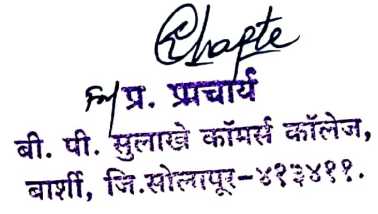 For प्र. प्राचार्य
बी. पी. सुलाखे कॉमर्स कॉलेज,
बार्शी, जि.सोलापूर-४१३४११.